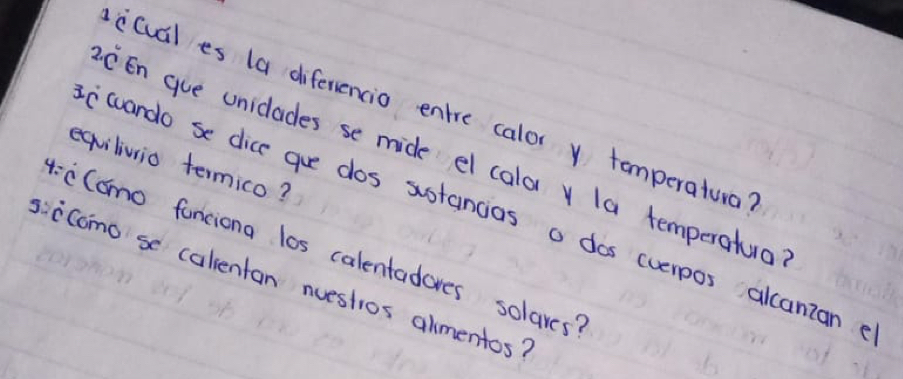 1¿Cuál es la diferencia entre calor y temperatura?
2¿En que unidades se mide el calor y la temperatura?
3¿Cuando se dice que dos sustancias o dos cuerpos alcanzan el
equilivrio termico?
4:¿Cómo funciona los calentadores solares?
5:¿Cómo se calientan nuestros alimentos?